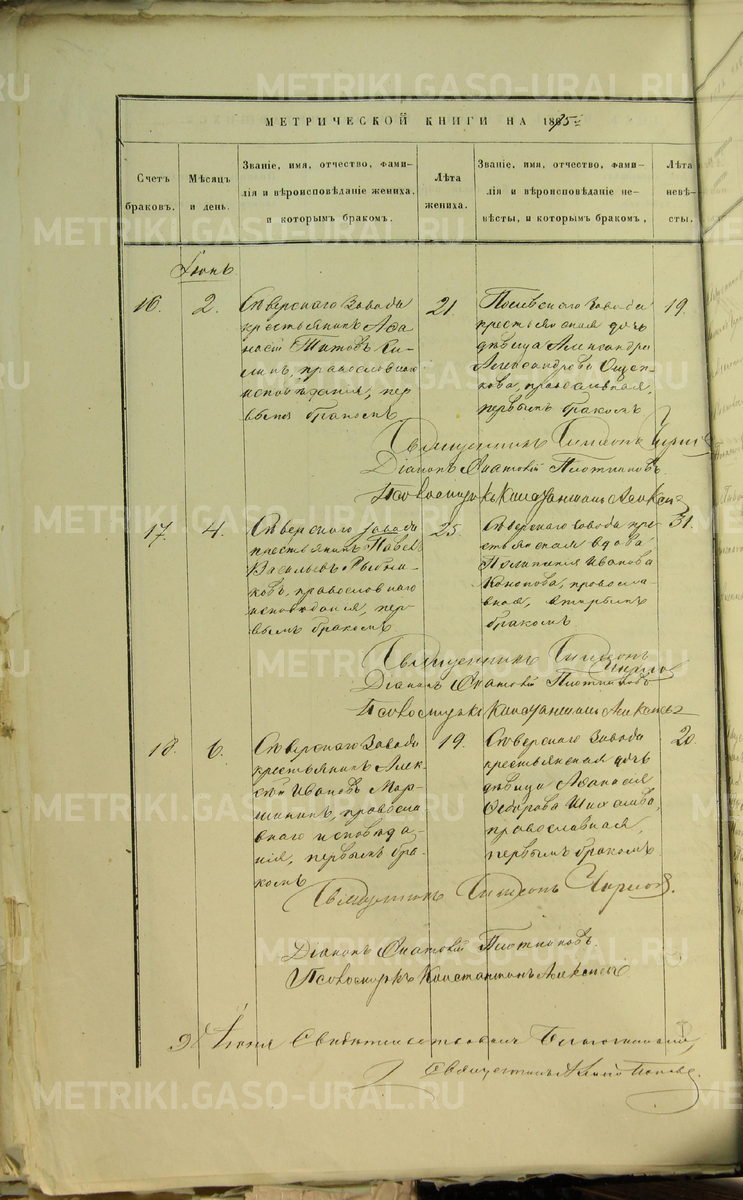 МЕТРИЧЕСКОЙ КНИГИ НА 1875й
Счетъ браковъ.
Мѣсяцъ и день.
Званіе, имя, отчество, фами-
лія и вѣроисповѣданіе жениха.
и которымъ бракомъ.
Лѣта жениха.
Званіе, имя, отчество, фами-
лія и вѣроисповѣданіе не-
вѣсты, и которымъ бракомъ,
Лѣта невѣ-
сты.
Іюнь
16.
2.
Сѣверскаго Завода
крестьянинъ Аѳа
насій Титовъ
православнаго
исповѣданія, пер
вымъ бракомъ
21
Полевскаго завода
крестьянская дочь
дѣвица Александра
Александрова Ощеп
кова, православная,
первымъ бракомъ
19.
Священникъ Симеонъ
Діаконъ Плотниковъ
Псаломщикъ Константинъ
17.
4.
Сѣверскаго завода
крестьянинъ Павелъ
Васильевъ Рыбни
ковъ, православнаго
исповѣданія, пер-
вымъ бракомъ
25.
Сѣверскаго завода кре
стьянская вдова
Иванова
Коропова, правосла
вная, вторымъ
бракомъ
31.
Священникъ Симеонъ
Діаконъ Плотниковъ
Псаломщикъ Константинъ
18.
6.
Сѣверскаго Завода
крестьянинъ Алек
сѣй Ивановъ Мар
правосла
внаго исповѣда
нія, первымъ бра-
комъ
19.
Сѣверскаго Завода
крестьянская дочь
дѣвица Аѳанасія
Ѳедорова
православная,
первымъ бракомъ
20.
Священникъ Симеонъ
Діаконъ Плотниковъ.
Псаломщикъ Константинъ
Іюня Свидѣтельствовалъ Благочинный,
Священникъ Поповъ.
METRIKI.GASO-URAL.RU